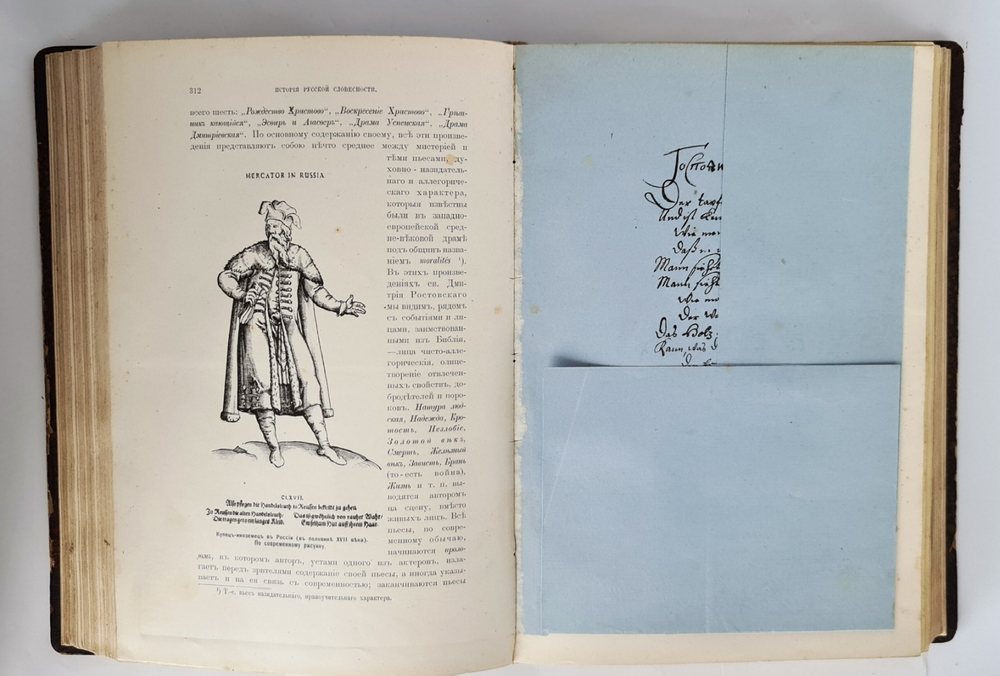 312
ИСТОРІЯ РУССКОЙ СЛОВЕСНОСТИ.
всего шесть: „Рождество Христово“, „Воскресеніе Христово“, „Грѣш-
никъ кающійся“, „Эсѳирь и Агасверъ“, „Драма Успенская“, „Драма
Дмитріевская“. По основному содержанію своему, всѣ эти произве-
денія представляютъ собою нѣчто среднее между мистеріей и
тѣми пьесами, ду-
ховно-назидатель-
наго и аллегориче-
скаго характера,
которыя извѣстны
были въ западно-
европейской сред-
не-вѣковой драмѣ
подъ общимъ назва-
ніемъ moralités ¹).
Въ этихъ произве-
деніяхъ св. Дми-
трія Ростовскаго
мы видимъ, рядомъ
съ событіями и ли-
цами, заимствован-
ными изъ Библіи,
—лица чисто-алле-
горическія, олице-
твореніе отвлечен-
ныхъ свойствъ, до-
бродѣтелей и поро-
ковъ. Натура люд-
ская, Надежда, Кро-
тость, Незлобіе,
Золотой вѣкъ,
Смерть, Желѣзный
вѣкъ, Зависть, Брань
(то-есть война),
Жить и т. п. вы-
водятся авторомъ
на сцену, вмѣсто
живыхъ лицъ. Всѣ
пьесы, по совре-
менному обычаю,
начинаются проло-
гомъ, въ которомъ авторъ, устами одного изъ актеровъ, изла-
гаетъ передъ зрителями содержаніе своей пьесы, а иногда указы-
ваетъ и на ея связь съ современностью; заканчиваются пьесы
MERCATOR IN RUSSIA
CLXVII.
Also pflegen die Handelsleuth in Reussen bekleidt zu gehen
In Reussen die alten Handelsleuth/
Die tragen gern ein langes Kleid.
Das ist gewöhnlich von rauher Wahr/
Ein seltzam Hut auff ihrem Haar.
Купецъ-иноземецъ въ Россіи (въ половинѣ XVII вѣка).
По современному рисунку.
¹) Т.-е. пьесъ назидательнаго, нравоучительнаго характера.
Der
Und ist
Wie
Daß
Mann sieht
Mann sieht
Wie
Der
Das Holz
Kann was